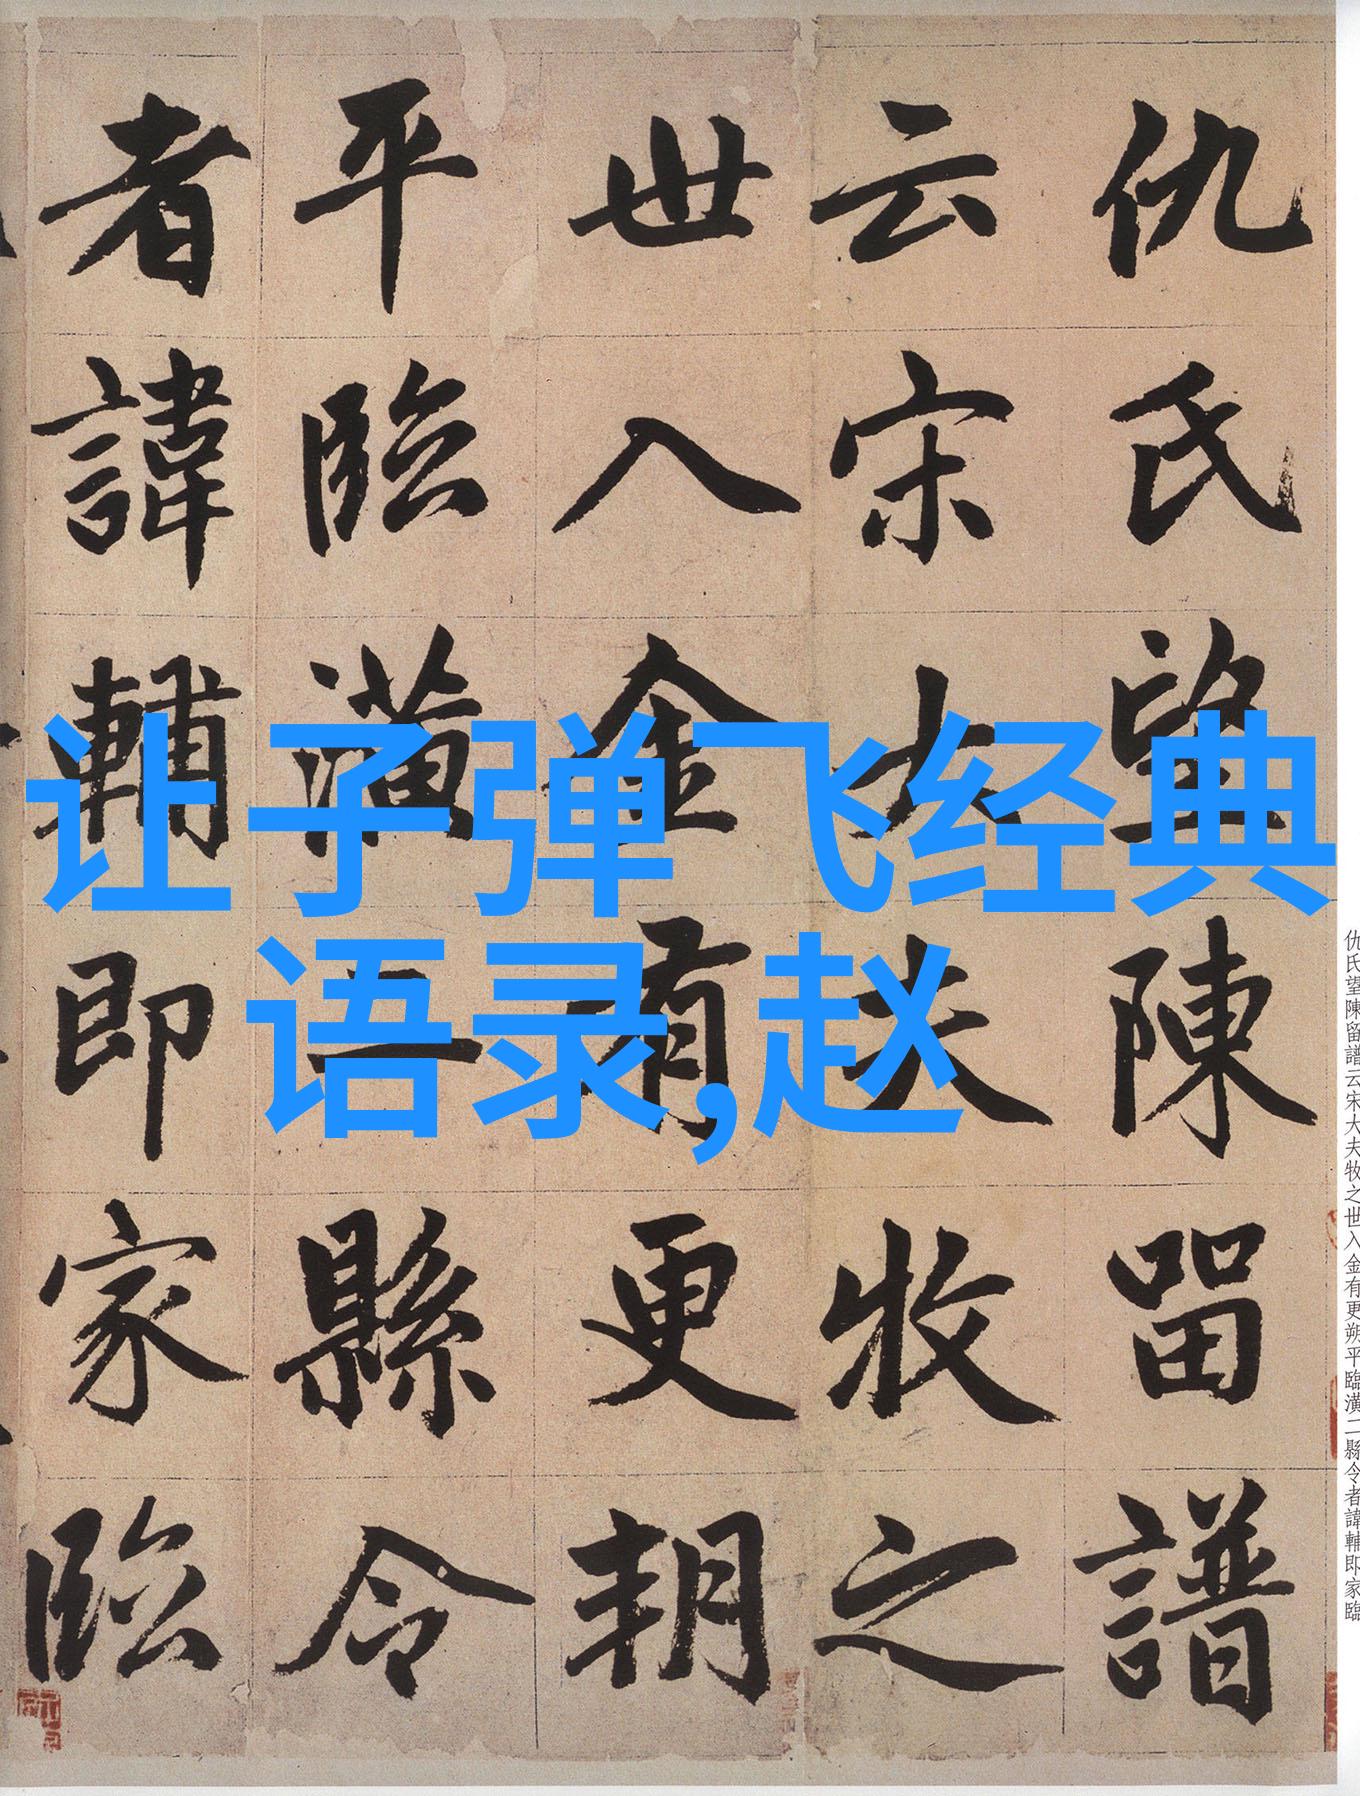 仇氏望陳留譜
云宋大夫牧之
世入金有更朔
平臨潢二縣令
者諱輔即家臨
让子弹飞经典
语录,赵
仇氏望陳留譜云宋大夫牧之世入金有更朔平臨潢二縣令者諱輔即家臨